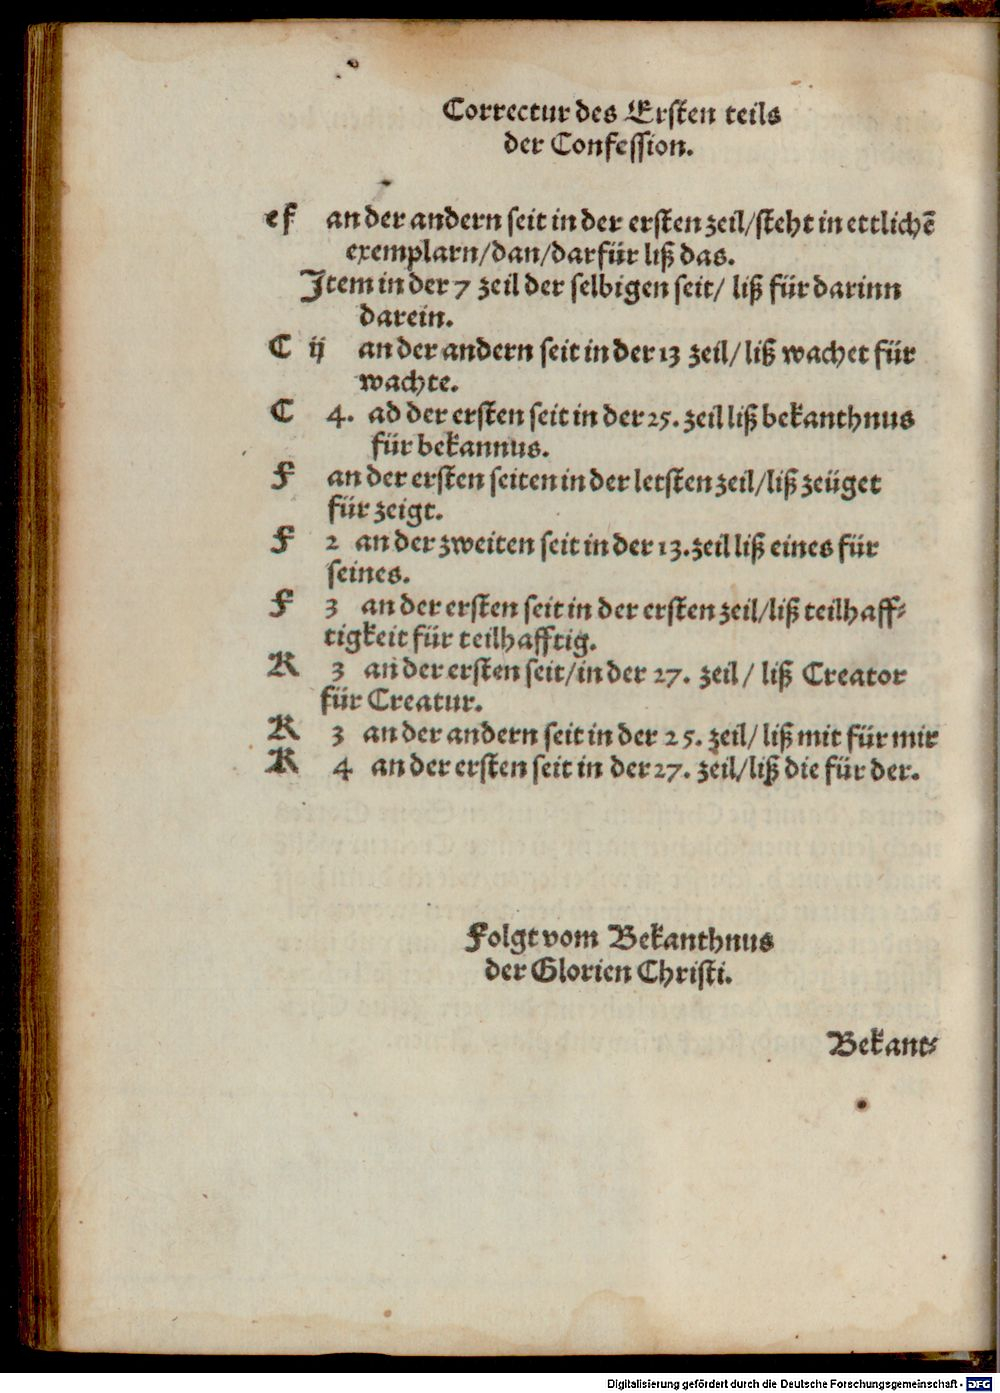 Correctur des Ersten teils
der Confession.
ef an der andern seit in der ersten zeil/steht in ettlichē
exemplarn/dan/darfür liß das.
Item in der 7 zeil der selbigen seit/ liß für darinn
darein.
C ij an der andern seit in der 13 zeil/ liß wachet für
wachte.
C 4. ad der ersten seit in der 25. zeil liß bekanthnus
für bekannus.
F an der ersten seiten in der letsten zeil/liß zeüget
für zeigt.
F 2 an der zweiten seit in der 13. zeil liß eines für
seines.
F 3 an der ersten seit in der ersten zeil/liß teilhaff⸗
tigkeit für teilhafftig.
K 3 an der ersten seit/in der 27. zeil/ liß Creator
für Creatur.
K 3 an der andern seit in der 25. zeil/ liß mit für mir
K 4 an der ersten seit in der 27. zeil/liß die für der.
Folgt vom Bekanthnus
der Glorien Christi.
Bekant⸗
Digitalisierung gefördert durch die Deutsche Forschungsgemeinschaft - DFG